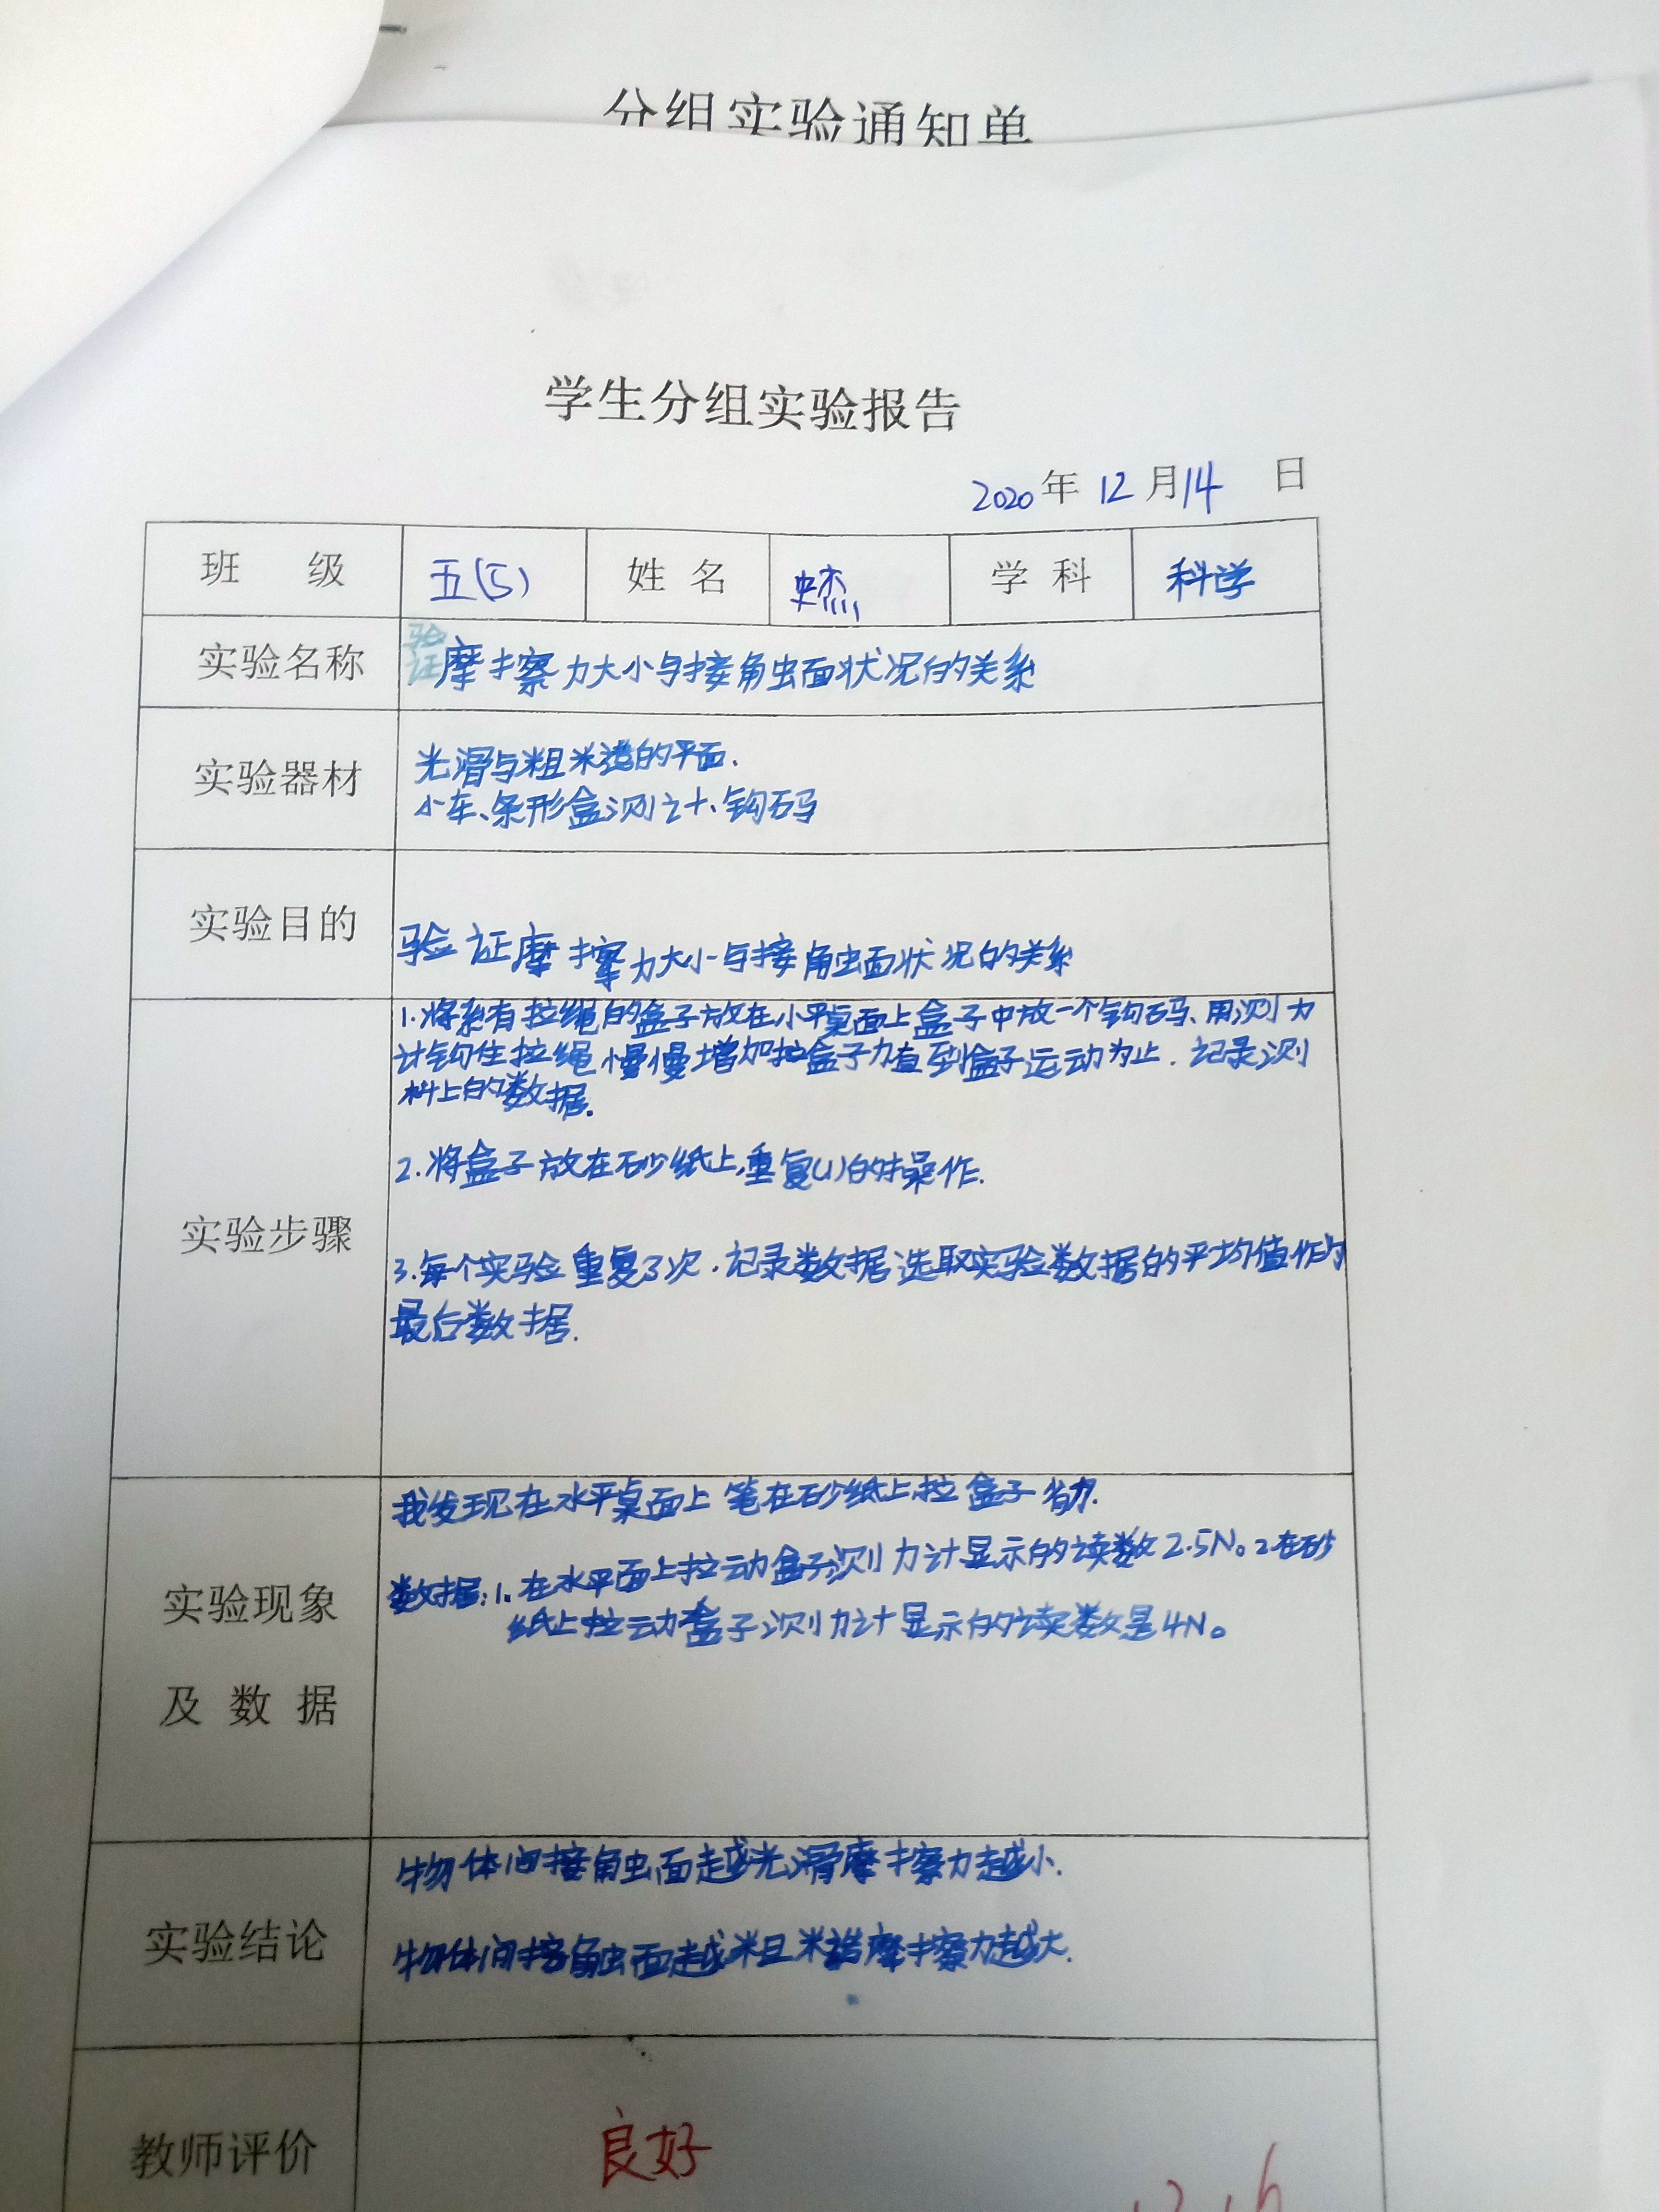 分组实验通知单
学生分组实验报告
2020年 12月14 日
班 级 五(5) 姓 名 史杰 学 科 科学
实验名称 验证摩擦力大小与接触面状况的关系
实验器材 光滑与粗糙的平面.
小车、条形盒测计、钩码
实验目的 验证摩擦力大小与接触面状况的关系
1.将系有拉绳的盒子放在小平桌面上盒子中放一个钩码、用测力
计钩住拉绳慢慢增加拉盒子力直到盒子运动为止.记录测
上的数据.
2.将盒子放在砂纸上,重复(1)的操作.
实验步骤
3.每个实验重复3次.记录数据选取实验数据的平均值作为
最后数据.
我发现在水平桌面上笔在砂纸上拉盒子省力.
数据:1.在水平面上拉动盒子测力计显示的读数2.5N。2在砂
纸上拉动盒子测力计显示的读数是4N。
实验现象
及 数 据
物体间接触面越光滑摩擦力越小.
实验结论
物体间接触面越粗糙摩擦力越大.
教师评价 良好